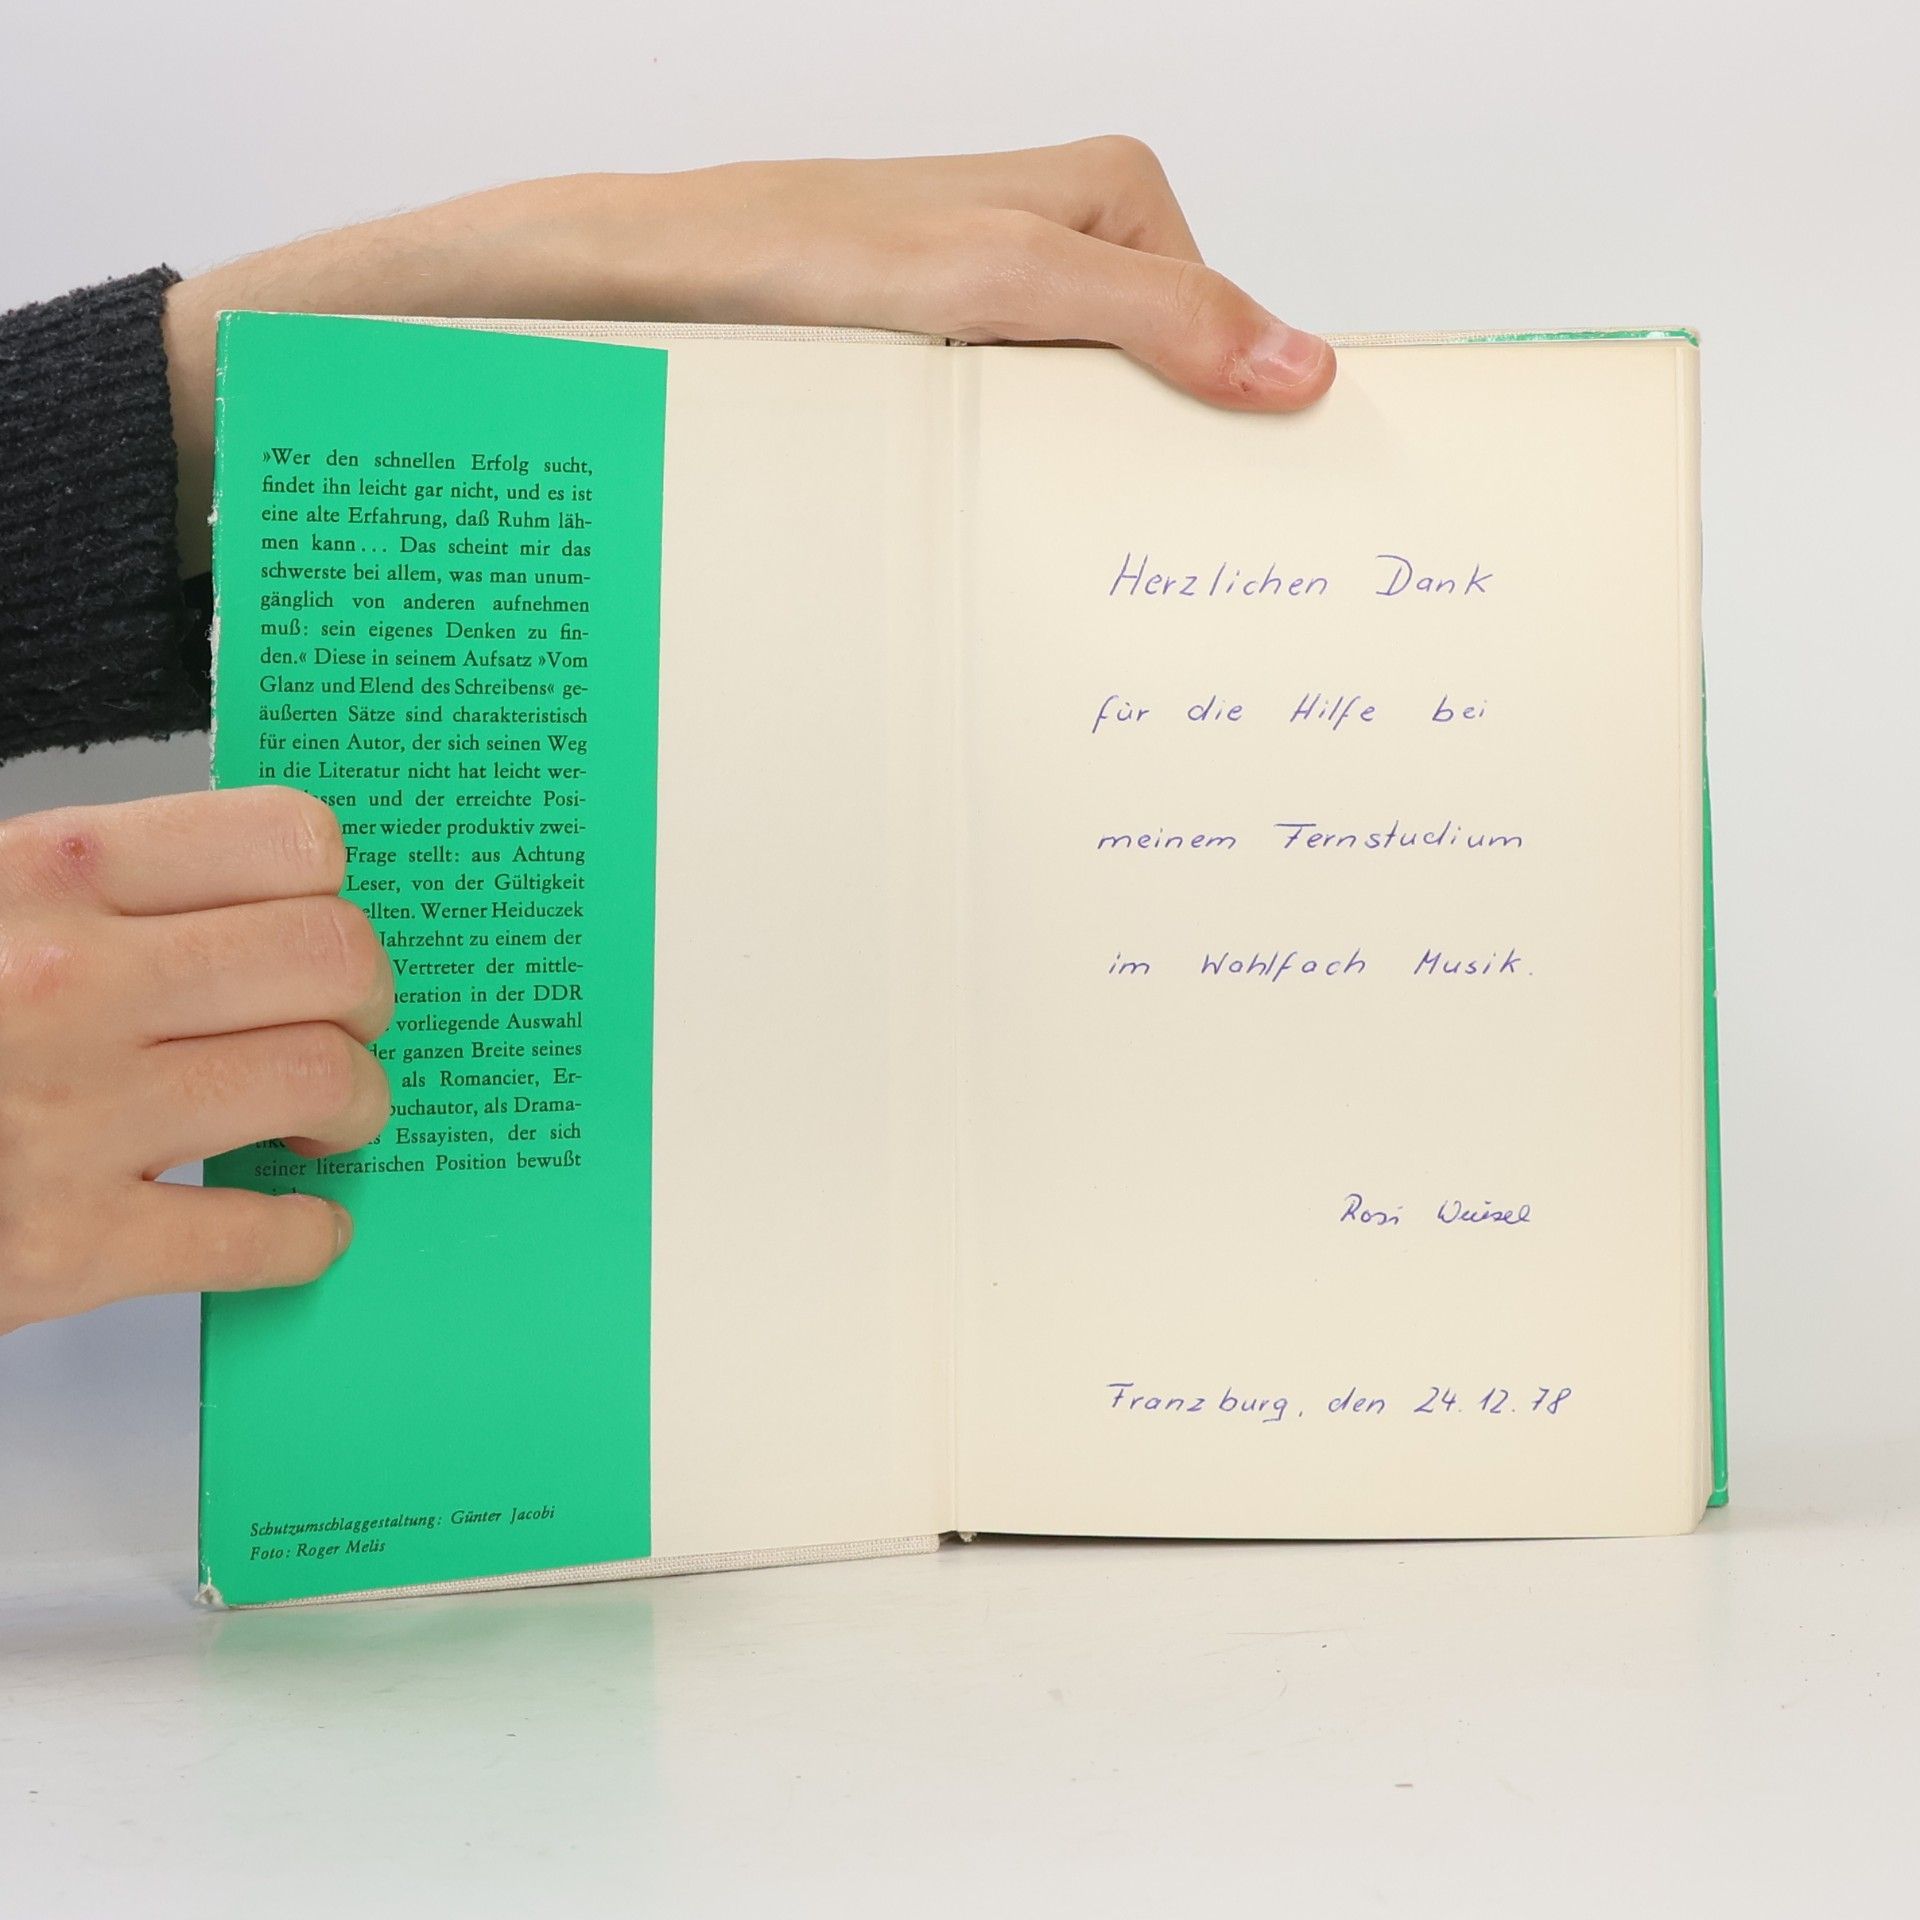 »Wer den schnellen Erfolg sucht,
findet ihn leicht gar nicht, und es ist
eine alte Erfahrung, daß Ruhm läh-
men kann... Das scheint mir das
schwerste bei allem, was man unum-
gänglich von anderen aufnehmen
muß: sein eigenes Denken zu fin-
den.« Diese in seinem Aufsatz »Vom
Glanz und Elend des Schreibens« ge-
äußerten Sätze sind charakteristisch
für einen Autor, der sich seinen Weg
in die Literatur nicht hat leicht wer-
und der erreichte Posi-
wieder produktiv zwei-
Frage stellt: aus Achtung
Leser, von der Gültigkeit
Werner Heiduczek
Jahrzehnt zu einem der
Vertreter der mittle-
in der DDR
vorliegende Auswahl
der ganzen Breite seines
als Romancier, Er-
als Drama-
Essayisten, der sich
seiner literarischen Position bewußt
Schutzumschlaggestaltung: Günter Jacobi
Foto: Roger Melis
Herzlichen Dank
für die Hilfe bei
meinem Fernstudium
im Wahlfach Musik.
Rosi
Franzburg, den 24.12.78